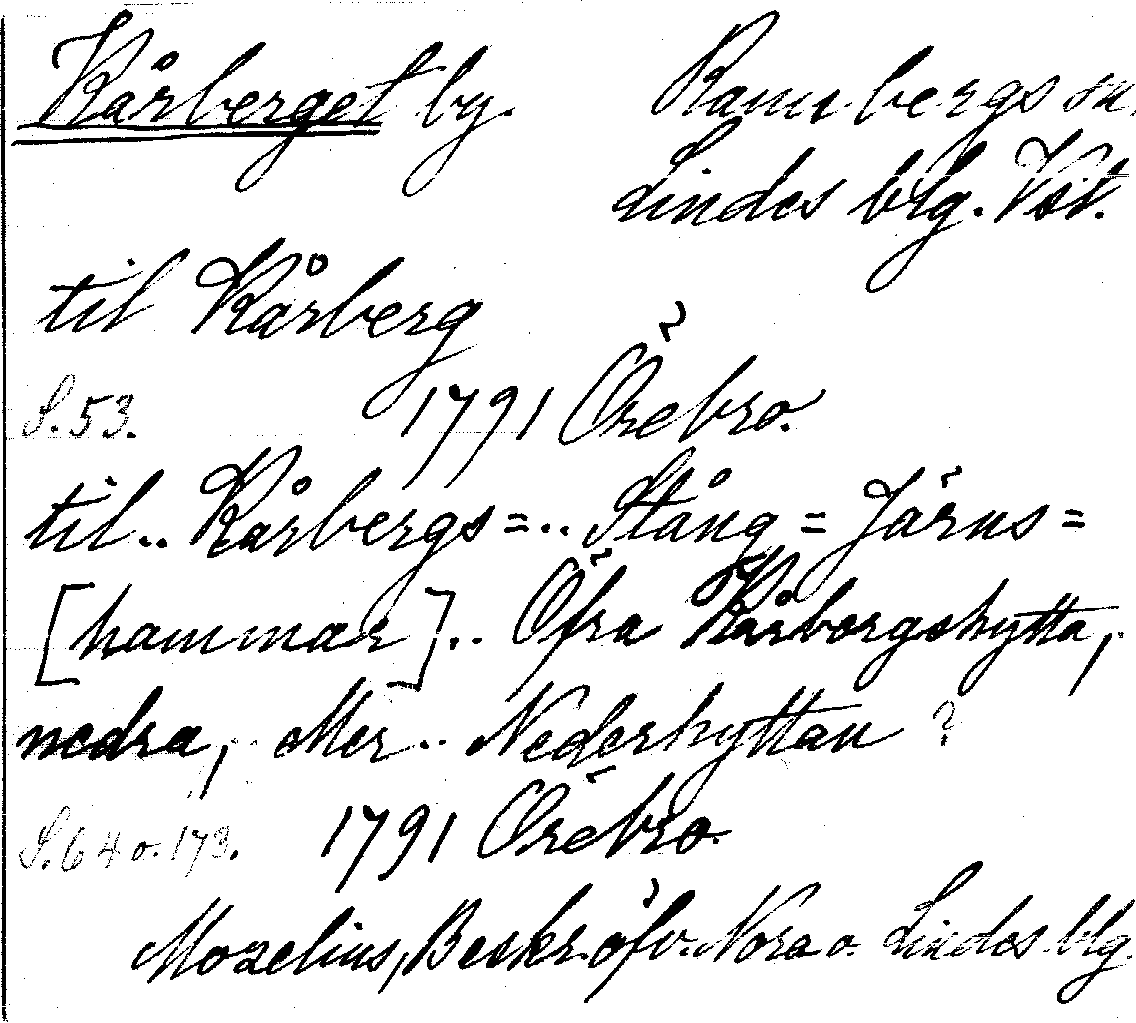 Kårberget by. Ramsbergs sn.
Lindes blg. Vstm.
til Kårberg
S. 53. 1791 Örebro.
til.. Kårbergs=.. Stång=Järns=
[hammar].. Öfra Kårborgshytta,
nedra, Mer.. Nederhyttan ?
S. 64 o. 173. 1791 Örebro.
Mozelius, Beskr. öfv. Nora o. Lindes blg.